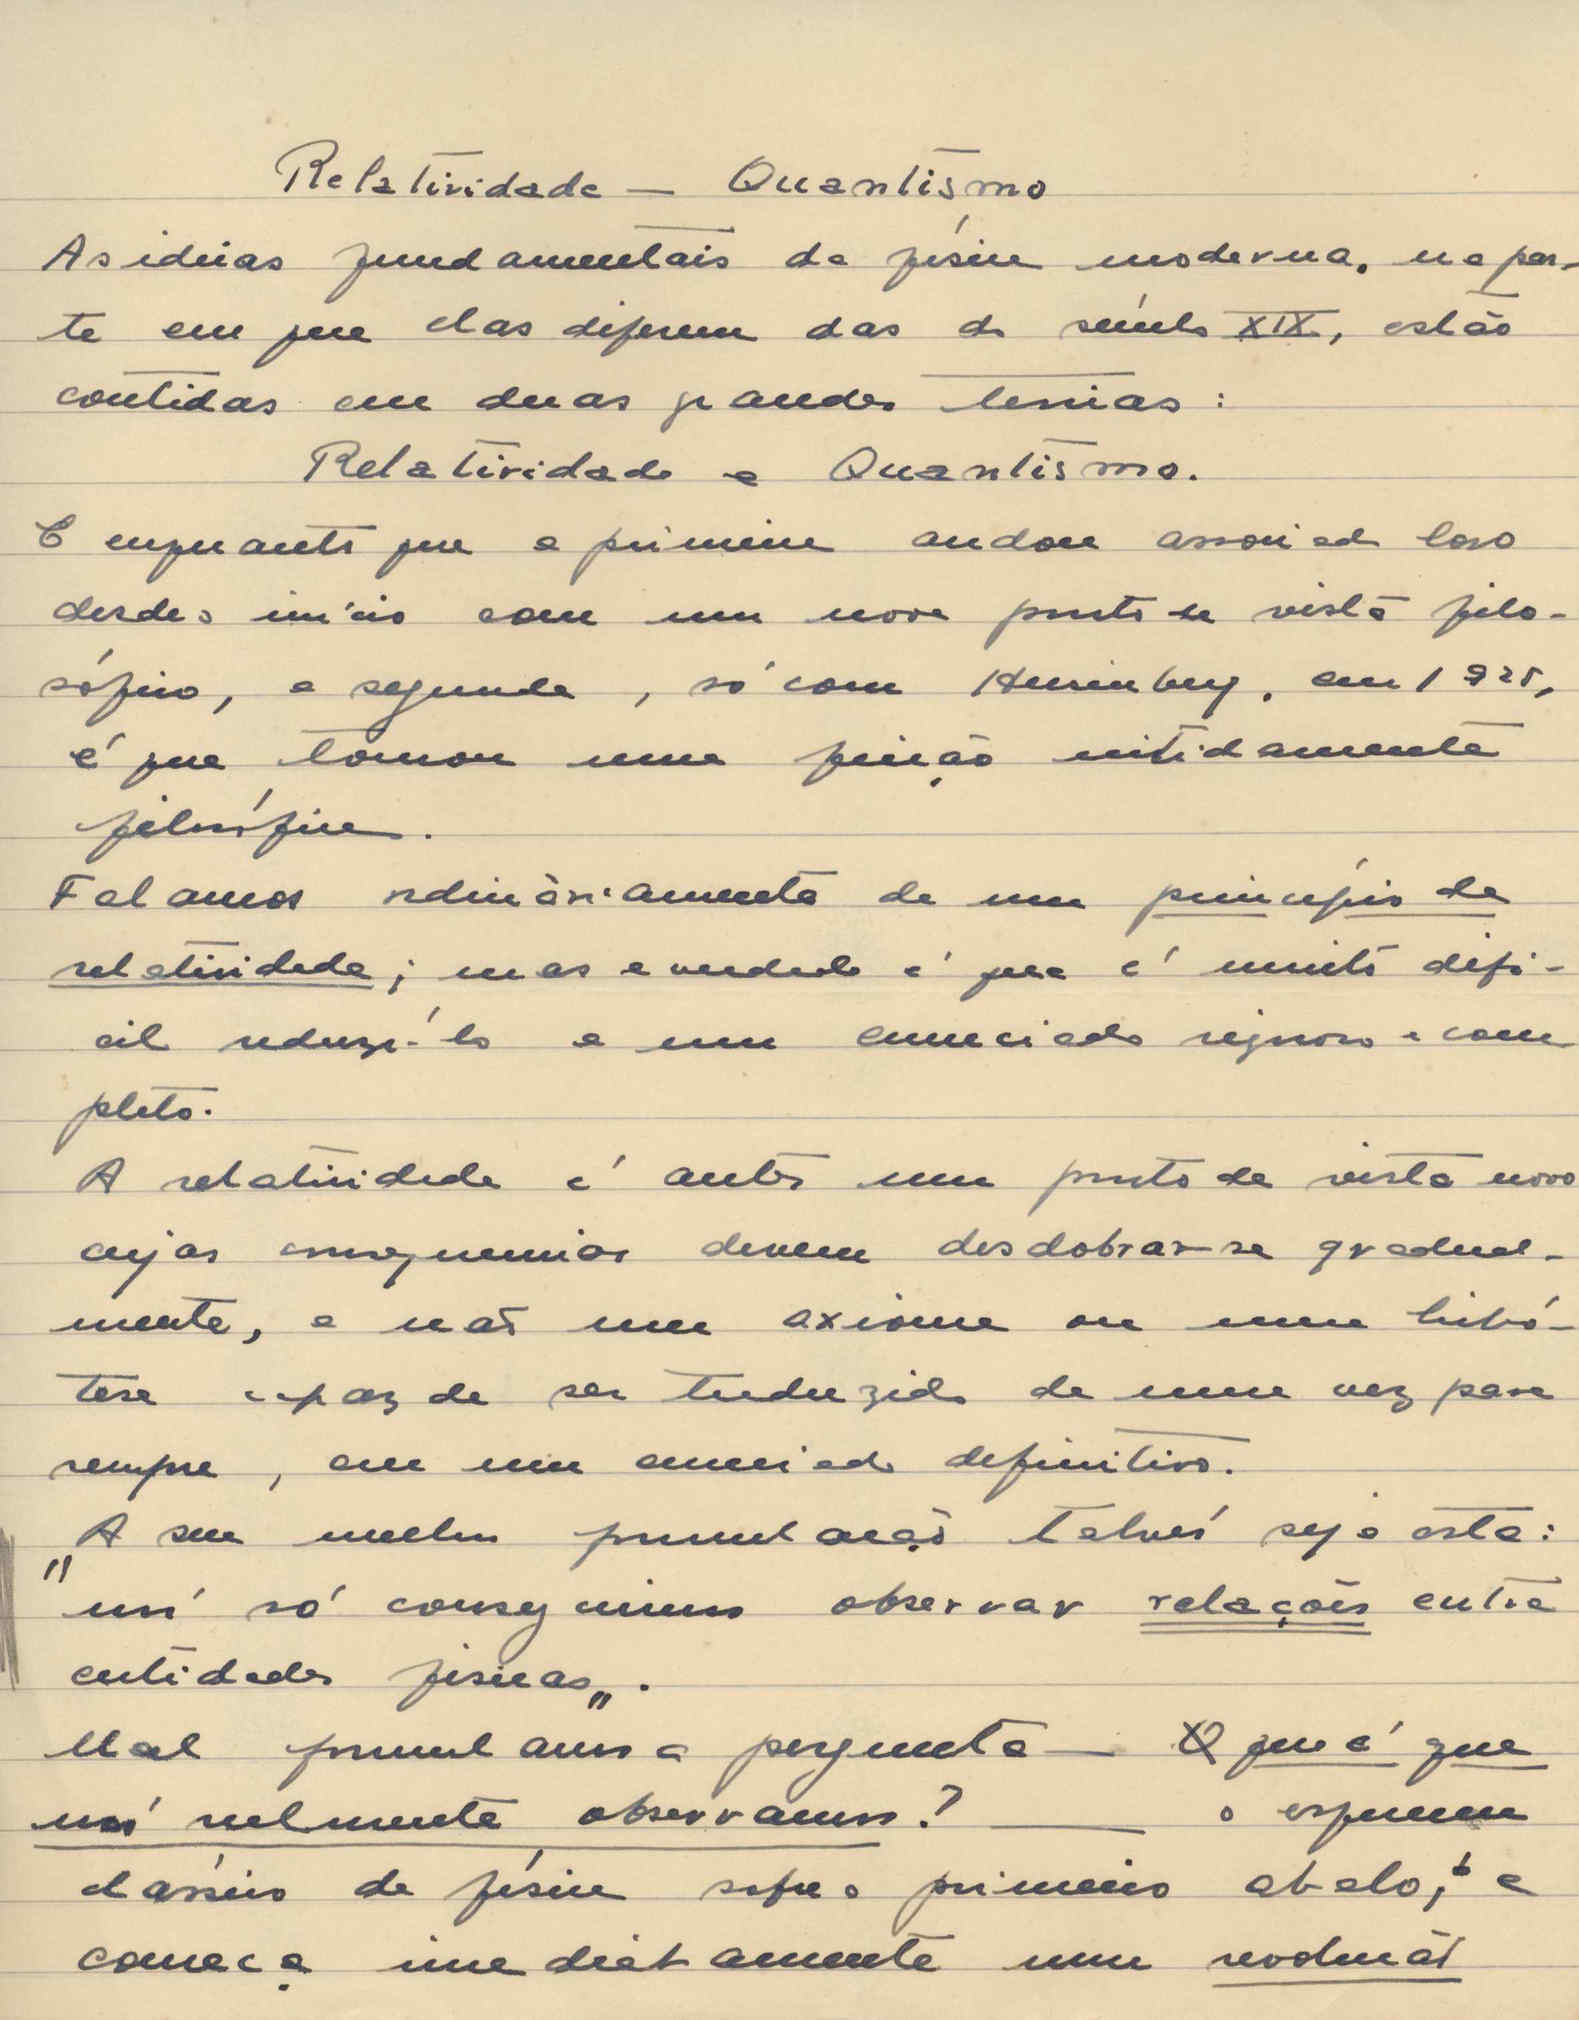 Relatividade — Quantismo
As ideias fundamentais da física moderna, na par-
te em que elas diferem das do século XIX, estão
contidas em duas grandes teorias:
Relatividade e Quantismo.
E enquanto que a primeira andou associada logo
desde o início com um novo ponto de vista filo-
sófico, a segunda, só com Heisenberg, em 1925,
é que tomou uma feição nitidamente
filosófica.
Falamos ordinàriamente de um princípio da
relatividade; mas a verdade é que é muito difí-
cil reduzi-lo a um enunciado rigoroso e com
pleto.
A relatividade é antes um ponto de vista novo
cujas consequencias devem desdobrar-se gradual-
mente, e não um axioma ou uma hipó-
tese capaz de ser traduzida de uma vez para
sempre, em um enunciado definitivo.
A sua melhor formulação talvês seja esta:
"nós só conseguimos observar relações entre
entidades físicas".
Mal formulamos a pergunta — O que é que
nós realmente observamos? — o esquema
clássico da física sofre o primeiro abalo, e
começa imediatamente uma revolução